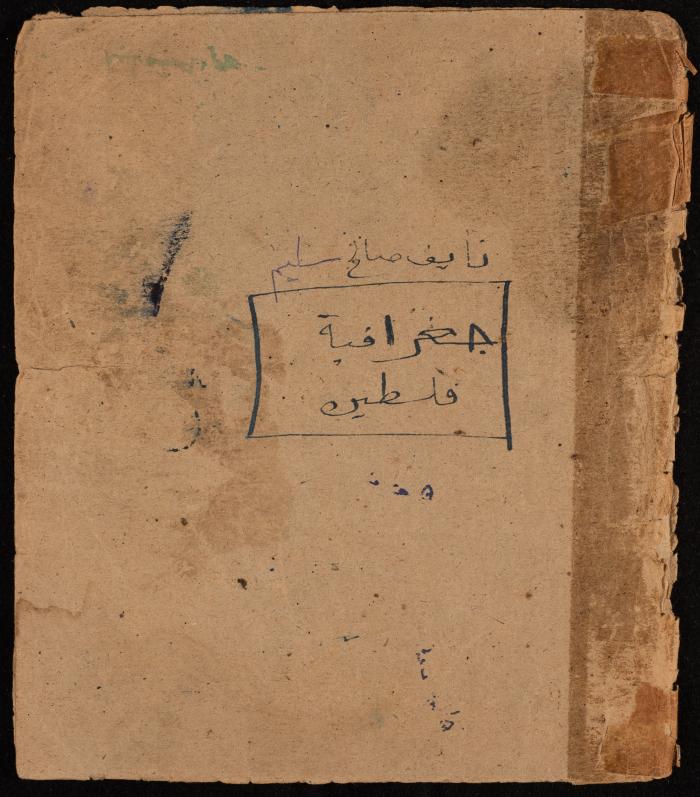 نايف صالح سليم
جغرافية
فلسطين